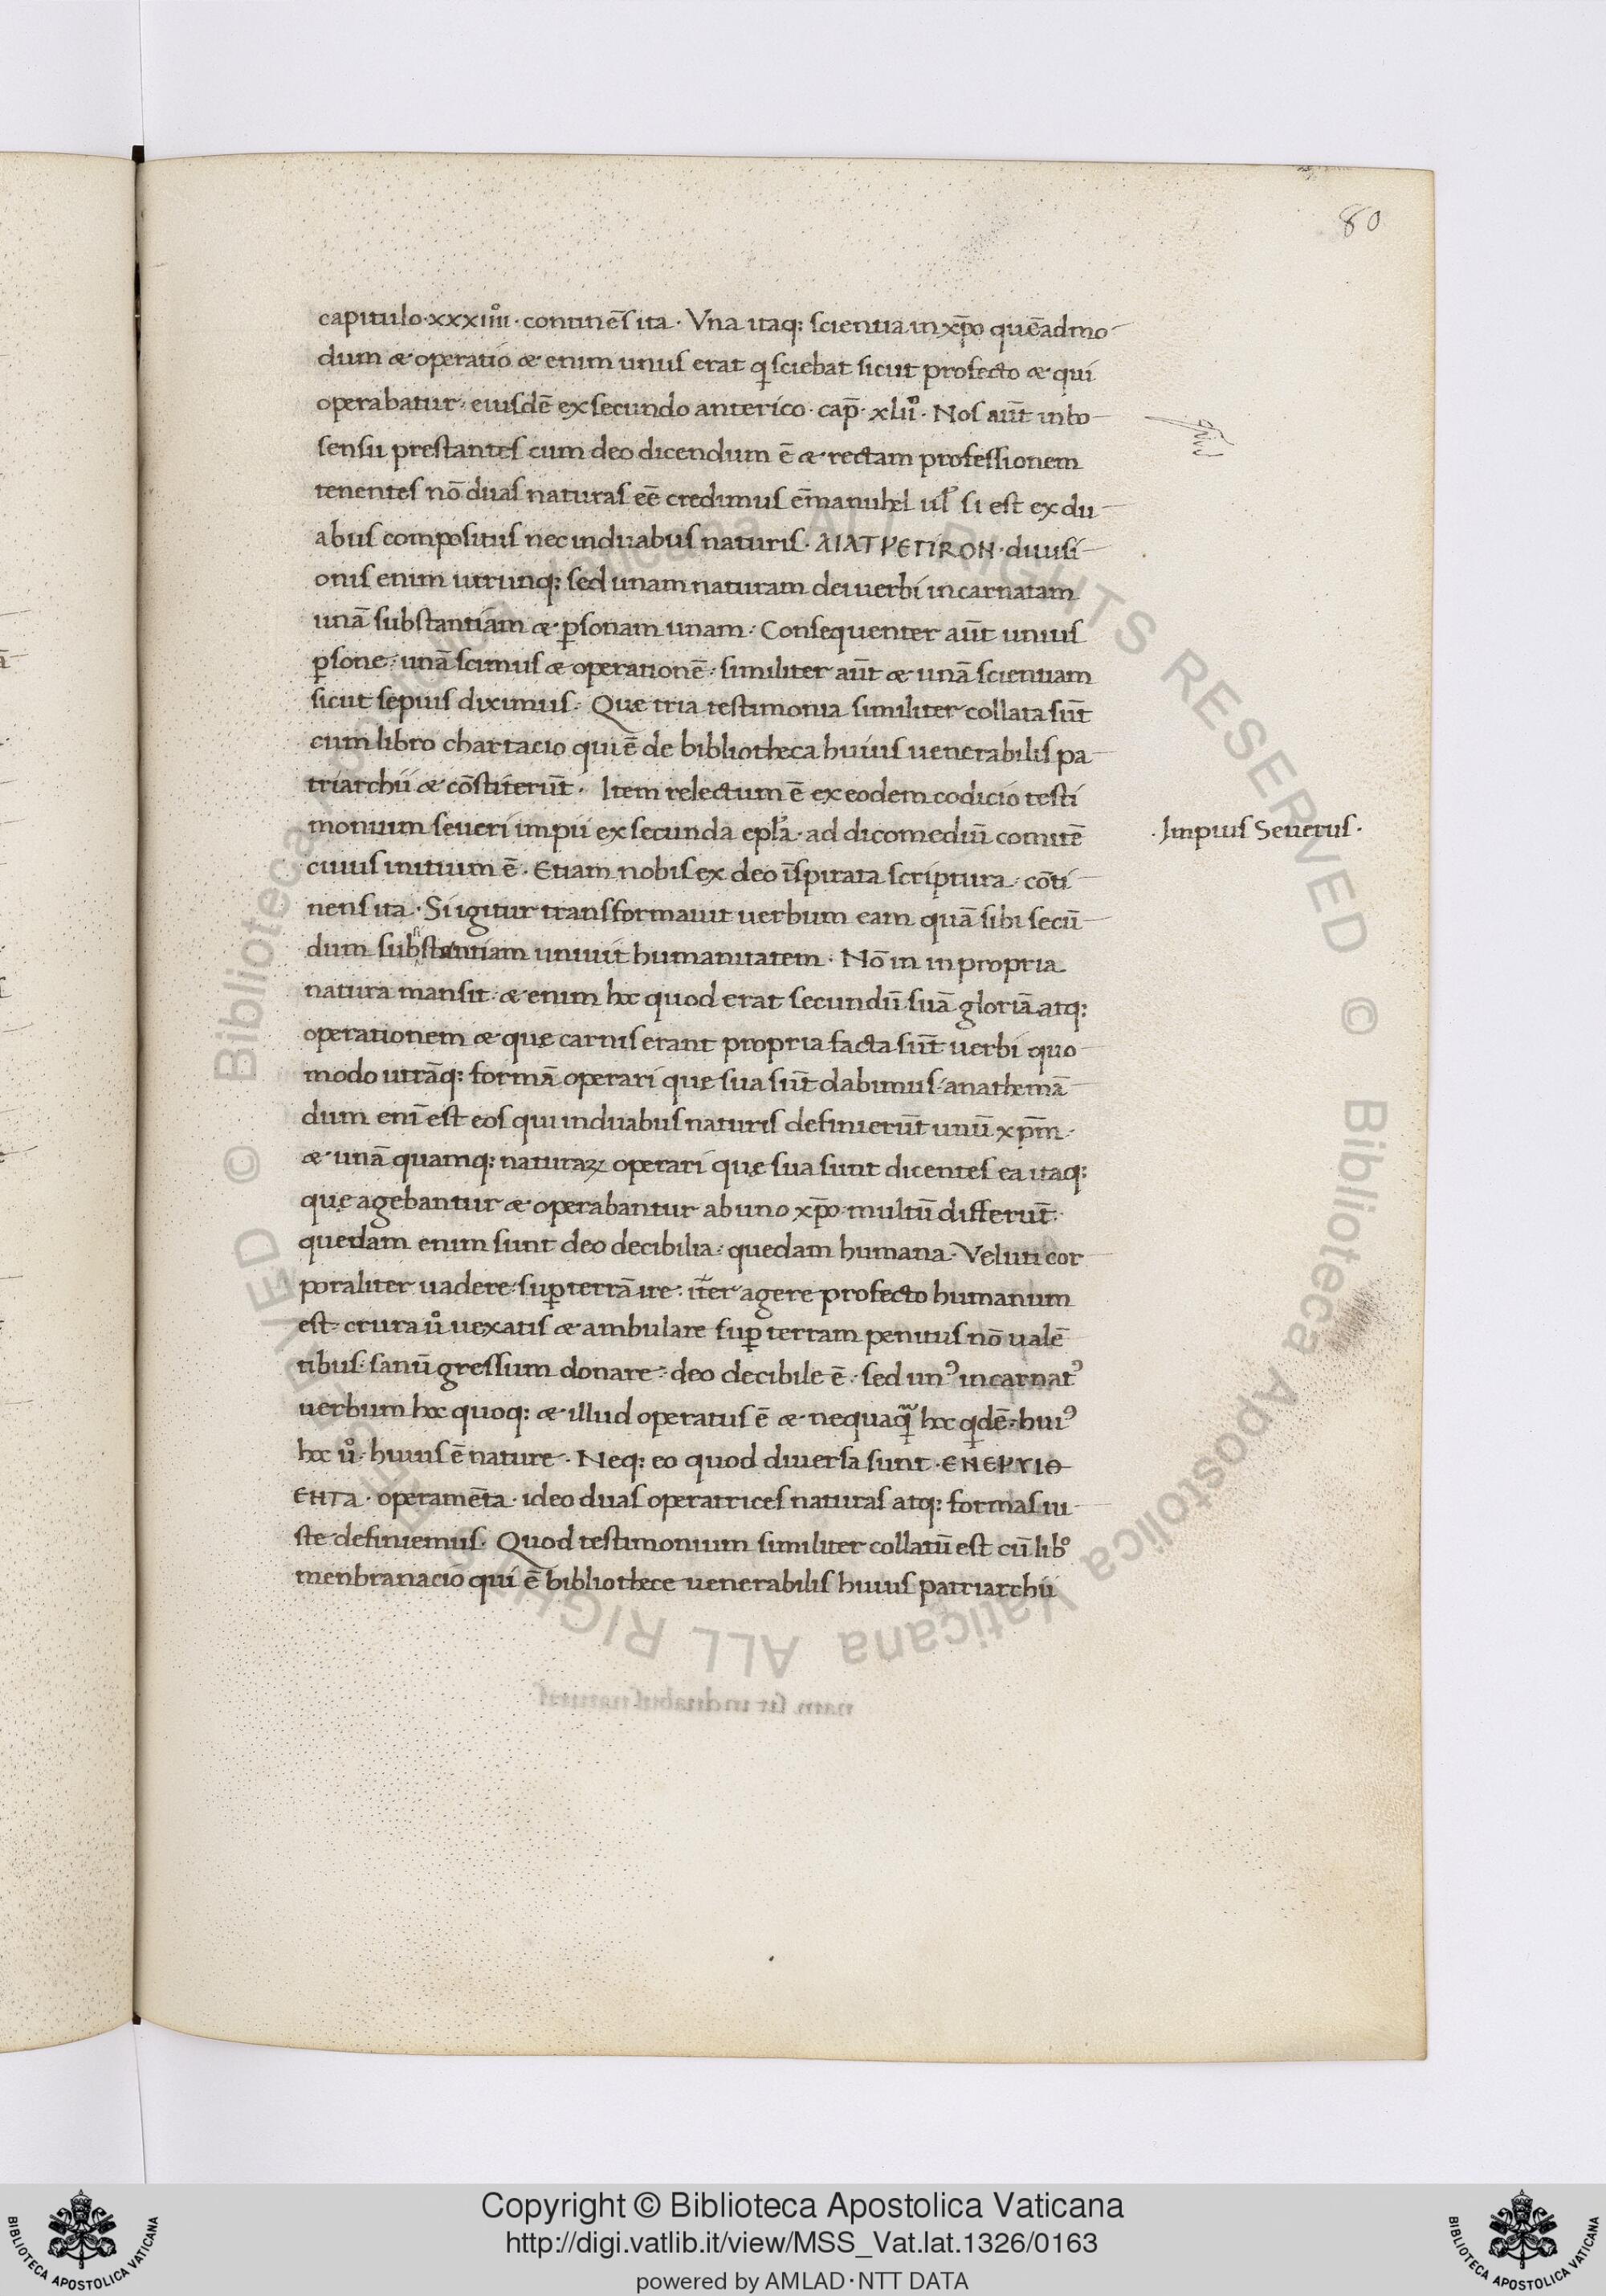 80
capitulo·xxxiiii͛·continēs ita· Vna itaq: scientia in xp̄o quēadmo
dum æ operatio æ enim unus erat q̣ sciebat sicut profecto æ qui
operabatur· eiusdē ex secundo anterico· cap̄· xlii͛· Nos aūt in bo
sensu prestantes cum deo dicendum ē æ rectam professionem
tenentes nō duas naturas eē credimus ēmanuhel ul̄ si est ex du
abus compositus nec induabus naturis· ΑΙΑΤΡΕΤΙRΟΝ· diuisi
onis enim utrunq: sed unam naturam dei uerbi incarnatam
unā substantiam æ p̱sonam unam· Consequenter aūt unius
p̱sone· unā scimus æ operationē· similiter aūt æ unā scientiam
sicut sepius diximus· Que tria testimonia similiter collata sūt
cum libro chartacio qui ē de bibliotheca huius uenerabilis pa
triarchii æ cōstiterūt· Item relectum ē ex eodem codicio testi
monium seueri impii ex secunda epl̄a· ad dicomediū comitē
·Impius Seuerus·
cuius initium ē· Etiam nobis ex deo īspirata scriptura· cōti
nens ita· Si igitur transformauit uerbum eam quā sibi secū
dum substantiam uniuit humanitatem· Nō in in propria
natura mansit· æ enim hoc quod erat secundū suā gloriā atq:
operationem æ que carnis erant propria facta sūt uerbi quo
modo utrāq: formā operari que sua sūt dabimus· anathemā
dum enī est eos qui induabus naturis definierūt unū xp̄m·
æ unā quamq: naturaꝝ operari que sua sunt dicentes ea itaq:
que agebantur æ operabantur ab uno xp̄o· multū differūt·
quedam enim sunt deo decibilia· quedam humana· Veluti cor
poraliter uadere· suꝑ terrā ire· iter agere profecto humanum
est· crura u̇ uexatis æ ambulare suꝑ terram penitus nō ualē
tibus· sanū gressum donare· deo decibile ē· sed unꝰ incarnatꝰ
uerbum hoc quoq: æ illud operatus ē æ nequaq̄ hoc qdē· huiꝰ
hoc u̇· huius ē nature· Neq: eo quod diuersa sunt· ΕΝΕΡΥΙΘ
ΕΝΤΑ· operamēta· ideo duas operatrices naturas atq: formas iu
ste definiemus· Quod testimonium similiter collatū est cū lib͛o
menbranacio qui ē bibliothece uenerabilis huius patriarchii
Copyright © Biblioteca Apostolica Vaticana
http://digi.vatlib.it/view/MSS_Vat.lat.1326/0163
powered by AMLAD·NTT DATA